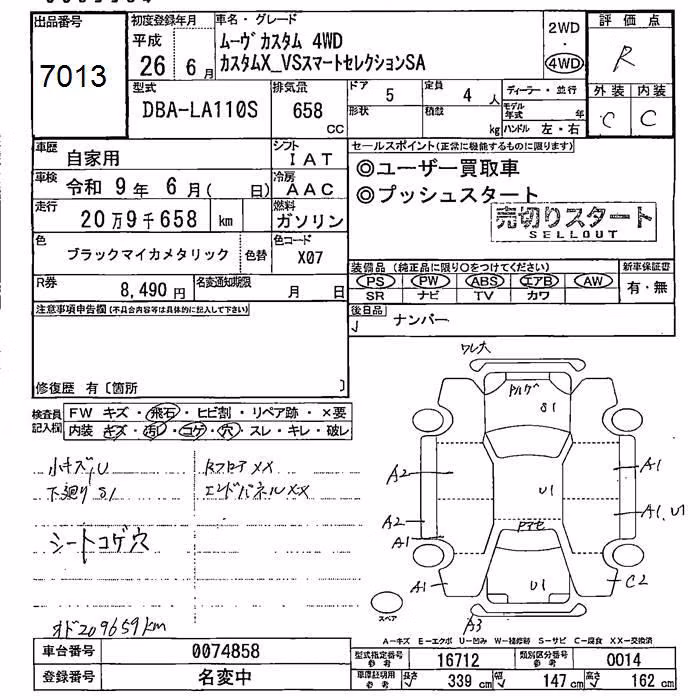 出品番号
7013
初度登録年月
平成
26年 6月
車名・グレード
ムーヴカスタム 4WD
カスタムX_VSスマートセレクションSA
2WD
・
4WD
評価点
R
外装 内装
C C
型式
DBA-LA110S
排気量
658
CC
ドア
5
定員
4人
形状
積載
kg
ディーラー・並行
モデル年式 年
ハンドル 左・右
車歴
自家用
シフト
IAT
車検
令和 9年 6月( 日)
冷房
AAC
走行
20万9千658 km
燃料
ガソリン
色
ブラックマイカメタリック
色替
色コード
X07
R券
8,490円
名変通知期限
月 日
セールスポイント(正常に機能するものに限ります)
◎ユーザー買取車
◎プッシュスタート
売切りスタート
SELLOUT
装備品 (純正品に限り○をつけてください)
PS PW ABS エアB AW
SR ナビ TV カワ
新車保証書
有・無
後日品
ナンバー
注意事項申告欄(不具合内容等は具体的に記入して下さい)
修復歴 有〔箇所 〕
検査員
記入欄
FW キズ・飛石・ヒビ割・リペア跡・×要
内装 キズ・汚レ・コゲ・穴・スレ・キレ・破レ
小キズ、U
下廻りS1
シートコゲ穴
RフロアXX
エンドパネルXX
オド209659km
ワレ大
S1
A2
A2
A1
A1
A1
A1、U1
C2
U1
U1
A3
スペア
A−キズ E−エクボ U−凹み W−補修跡 S−サビ C−腐食 XX−交換済
車台番号
0074858
登録番号
名変中
型式指定番号
参考
16712
類別区分番号
参考
0014
車庫証明用
参考
長さ
339 cm
幅
147 cm
高さ
162 cm